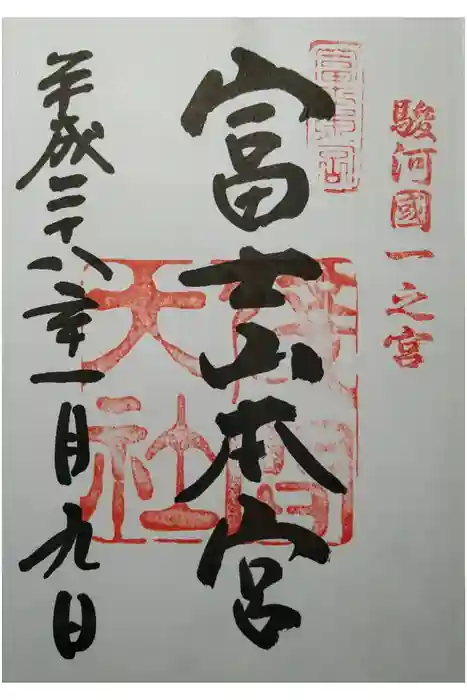 駿河國一之宮
富士山本宮
淺間大社
平成二十八年一月九日